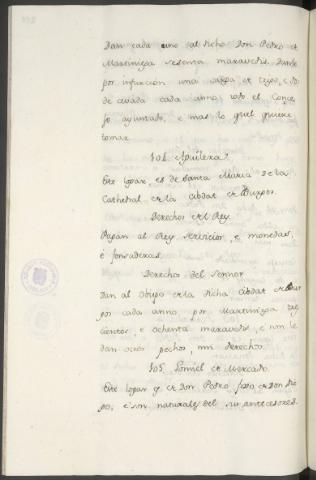 Dan cada uno al dicho Don Pedro et
Martiniega sesenta maravedis. Danle
por infurcion una carga et
de cevada cada anno todo el Conce-
jo ayuntado, e mas lo quel quiere
tomar.
101. Aguilera.
Este logar, es de Santa Maria de la
Cathedral de la cibdat de Burgos.
Derechos del Rey
Pagan al Rey servicios, e monedas,
e fonsaderas.
Derechos del Sennor
Dan al Obispo de la dicha cibdat de Bur
gos cada anno por Martiniega
cientos, e ochenta maravedis, e non le
dan otros pechos, nin derechos.
105. Gomiel de Mercado.
Este logar es de Don Pedro fijo de Don Die
go, e son naturales del sus antecesores.